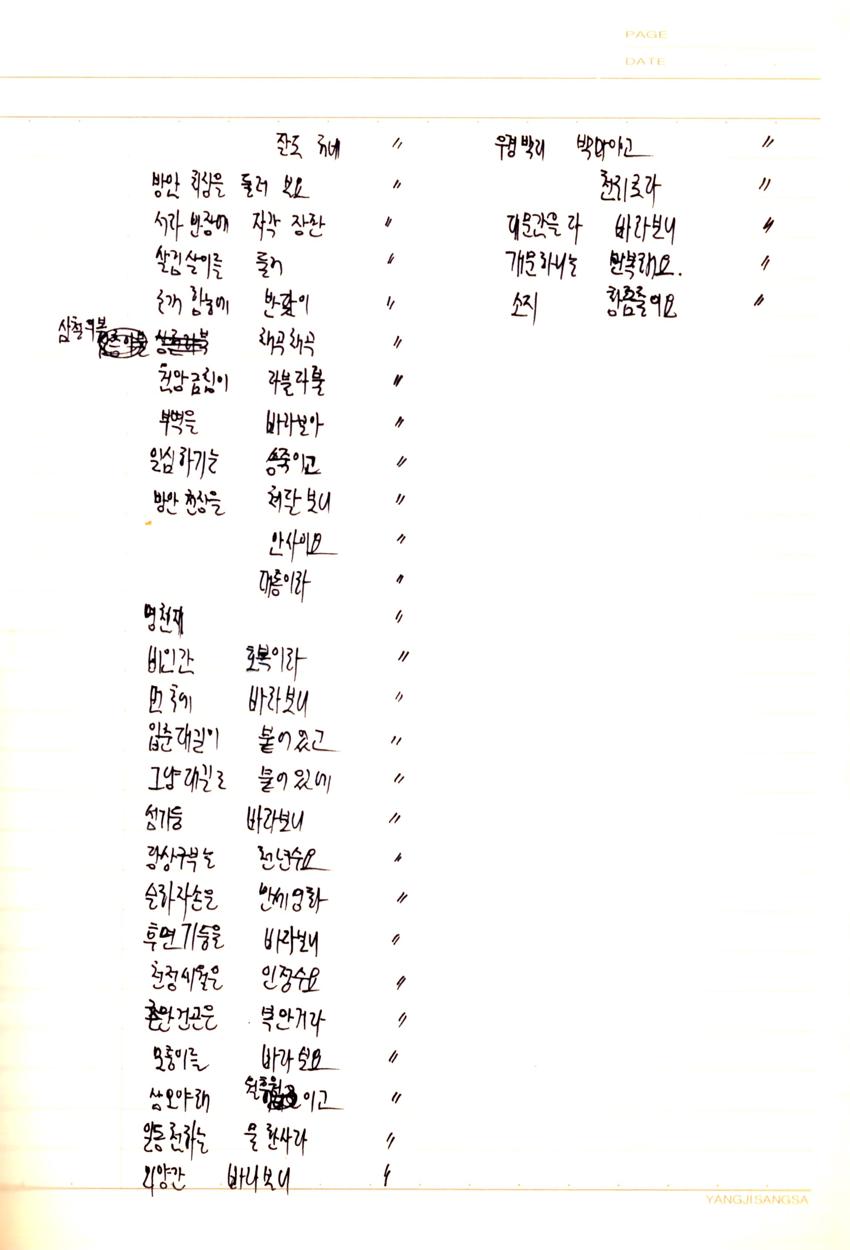 PAGE
DATE
잔도 하네 〃
방안 치상을 둘러 보요 〃
서라 반장에 자각 장판 〃
살림살이를 둘러 〃
함농에 반닫이 〃
채곡채곡 〃
원앙금침이 라블라블 〃
부엌을 바라보아 〃
일심하기는 송죽이고 〃
방안 천상을 쳐단보니 〃
안사이요 〃
대종이라 〃
명천재 〃
비인간 호복이라 〃
바라보니 〃
입춘대길이 붙어 있고 〃
그냥대길로 붙어 있네 〃
섬가둥 바라보니 〃
천년수요 〃
슬하자손을 만세영화 〃
후면기둥을 바라보니 〃
천정세월은 인장수요 〃
춘만건곤은 복만거라 〃
모중이를 바라보요 〃
삼오야래 이고 〃
일등천하는 울한사라 〃
외양간 바나보니 〃
우경박리 박마야고 〃
천리로라 〃
대문간을 다 바라보니 〃
개문하니는 만복래요. 〃
소지 황쫌출이요 〃
YANGJISANGSA